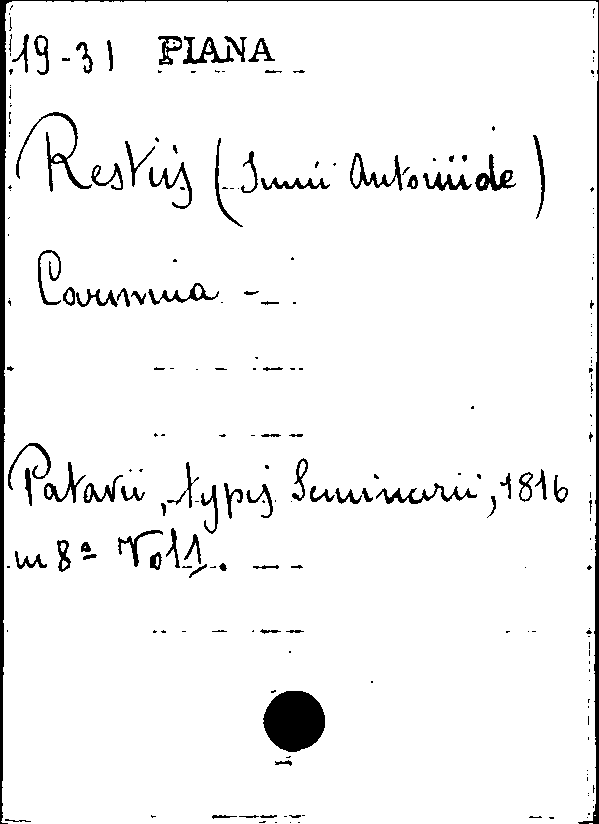 19-31 PIANA
Restiis (Junii Antonii de)
Carmina -
Patavii, typis Seminarii, 1816
in 8ª Vol 1.